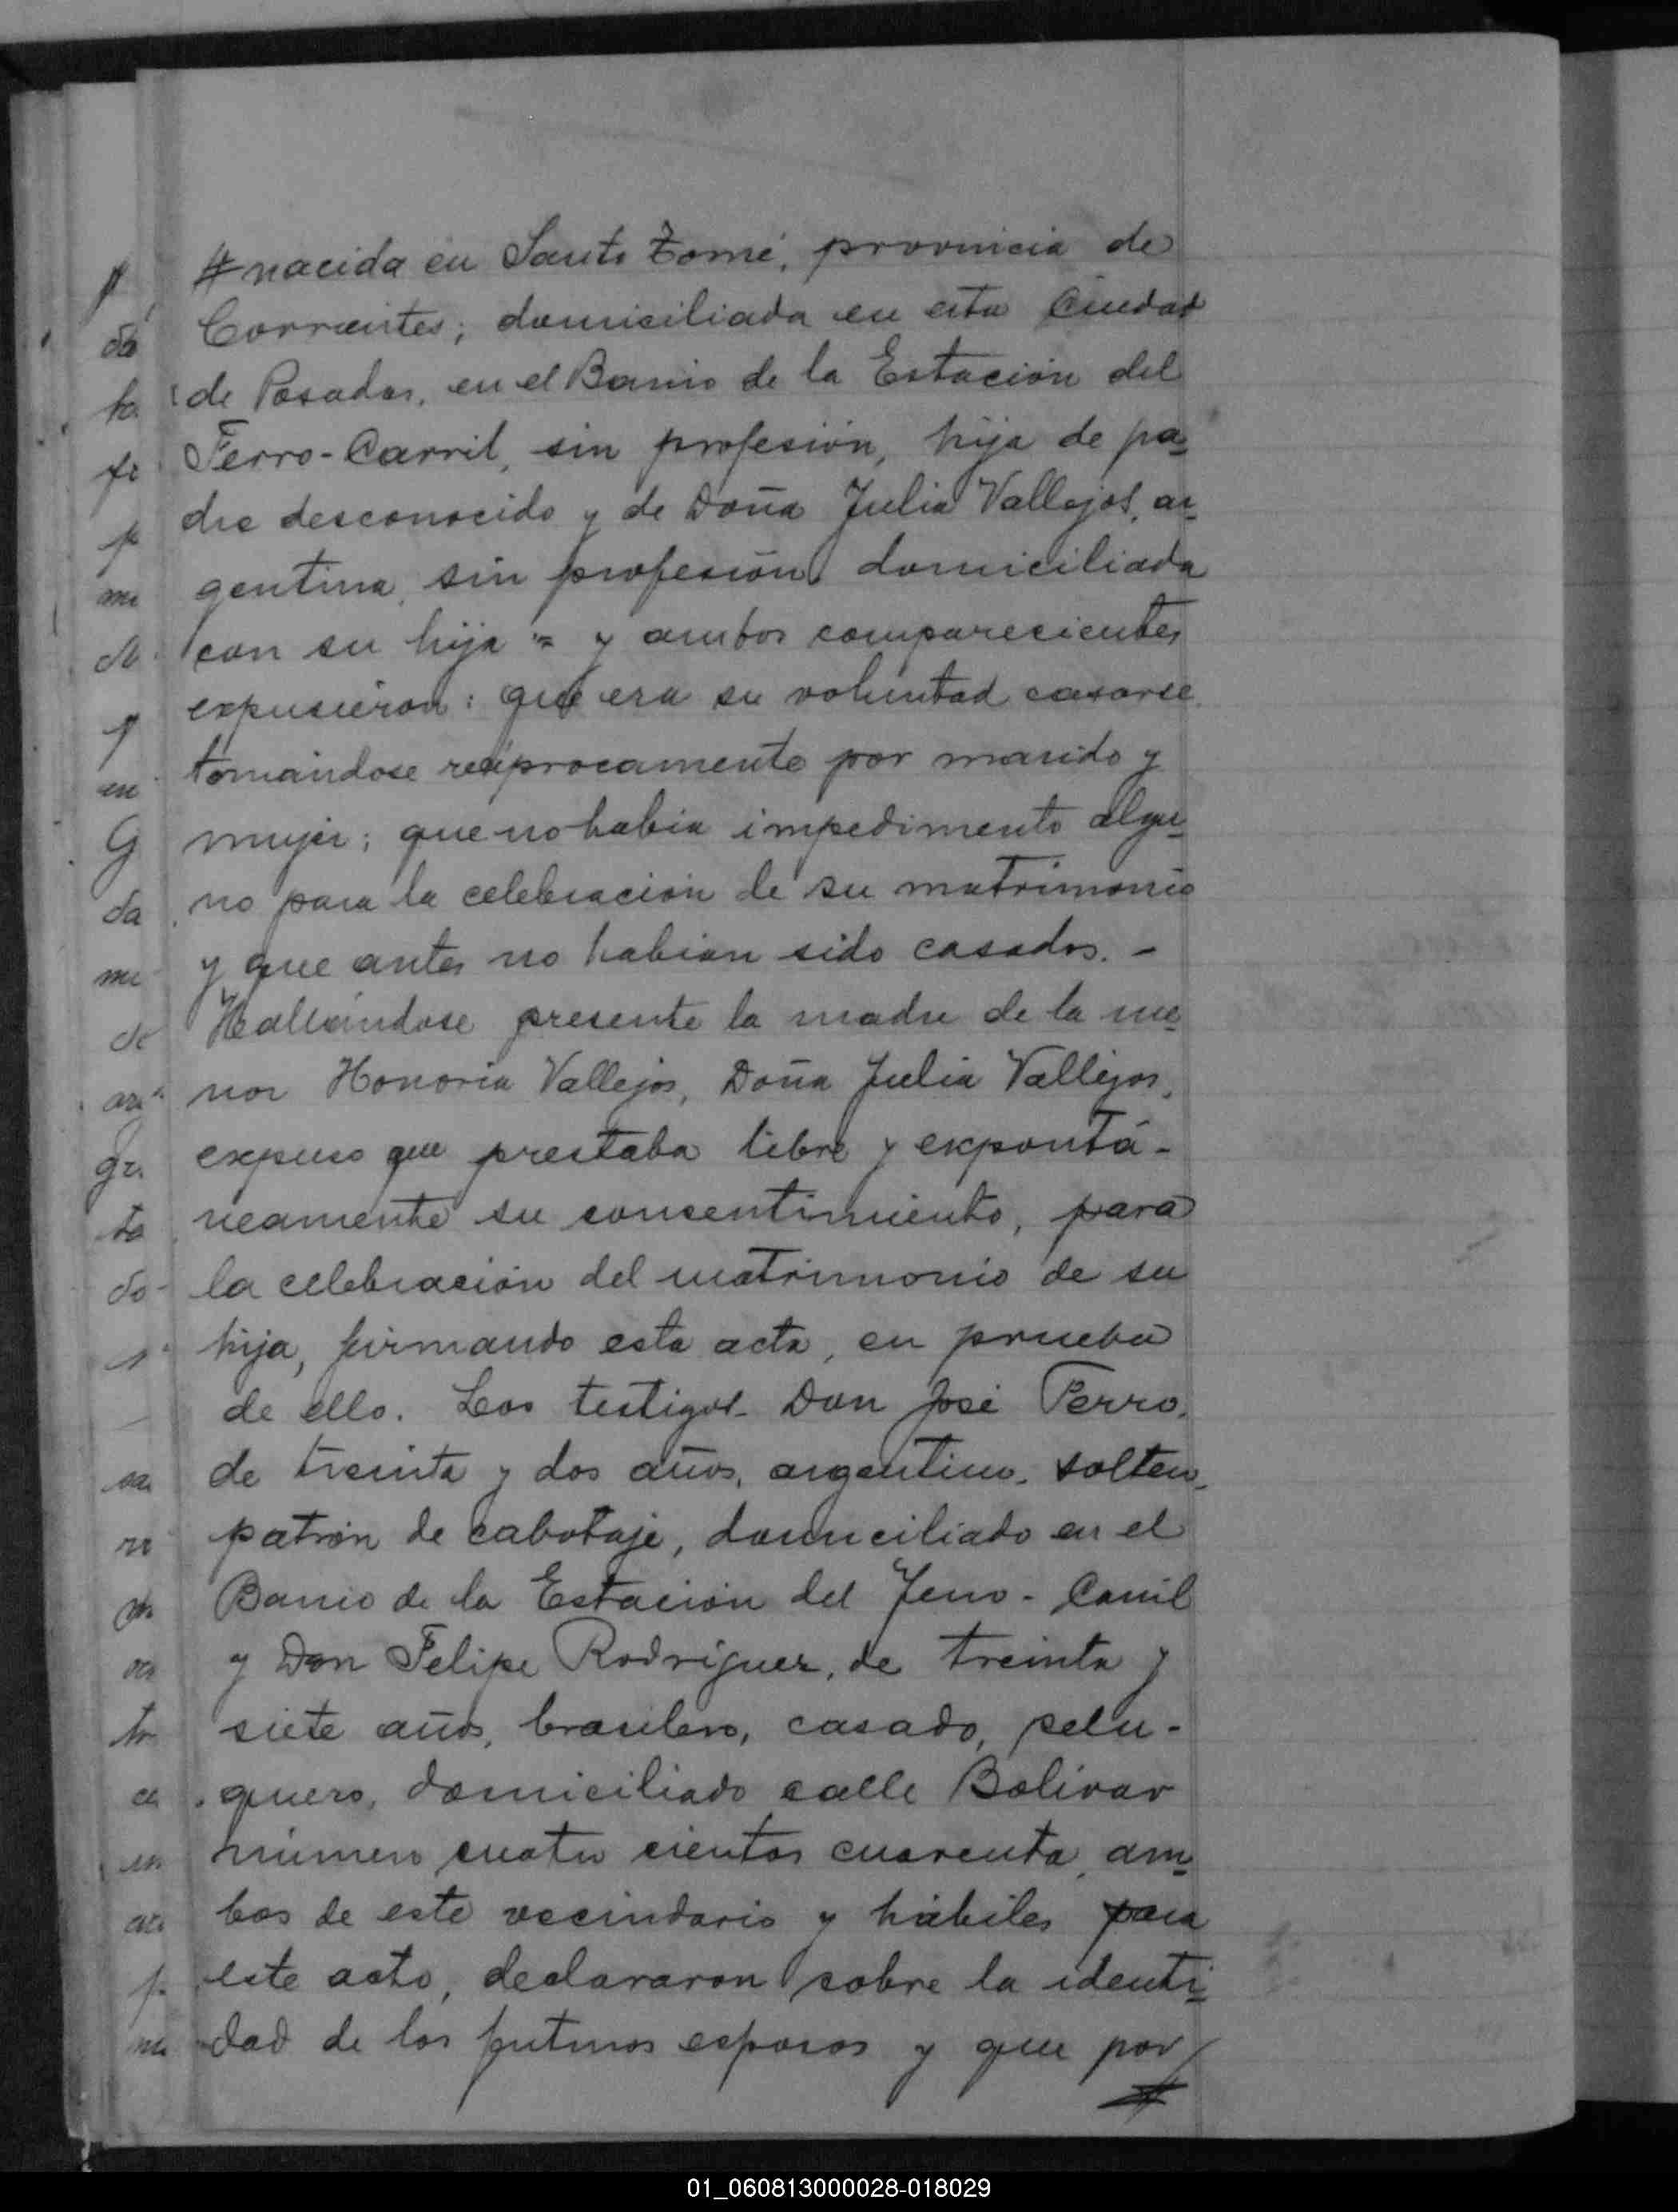 # nacida en Santo Tomé, provincia de
Corrientes; domiciliada en esta Ciudad
de Posadas, en el Barrio de la Estación del
Ferro-Carril, sin profesión, hija de pa-
dre desconocido y de Doña Julia Vallejos, ar-
gentina, sin profesión, domiciliada
con su hija = y ambos comparecientes
expusieron: que era su voluntad casarse
tomándose recíprocamente por marido y
mujer; que no había impedimento algu-
no para la celebración de su matrimonio
y que antes no habían sido casados. -
Hallándose presente la madre de la me-
nor Honoria Vallejos, Doña Julia Vallejos,
expuso que prestaba libre y expontá-
neamente su consentimiento, para
la celebración del matrimonio de su
hija, firmando esta acta, en prueba
de ello. Los testigos Don José Perro,
de treinta y dos años, argentino, soltero,
patrón de cabotaje, domiciliado en el
Barrio de la Estación del Ferro-Carril
y Don Felipe Rodríguez, de treinta y
siete años, brasilero, casado, pelu-
quero, domiciliado calle Bolívar
número cuatro cientos cuarenta, am-
bos de este vecindario y hábiles para
este acto, declararon sobre la identi-
dad de los futuros esposos y que por
#
01_060813000028-018029